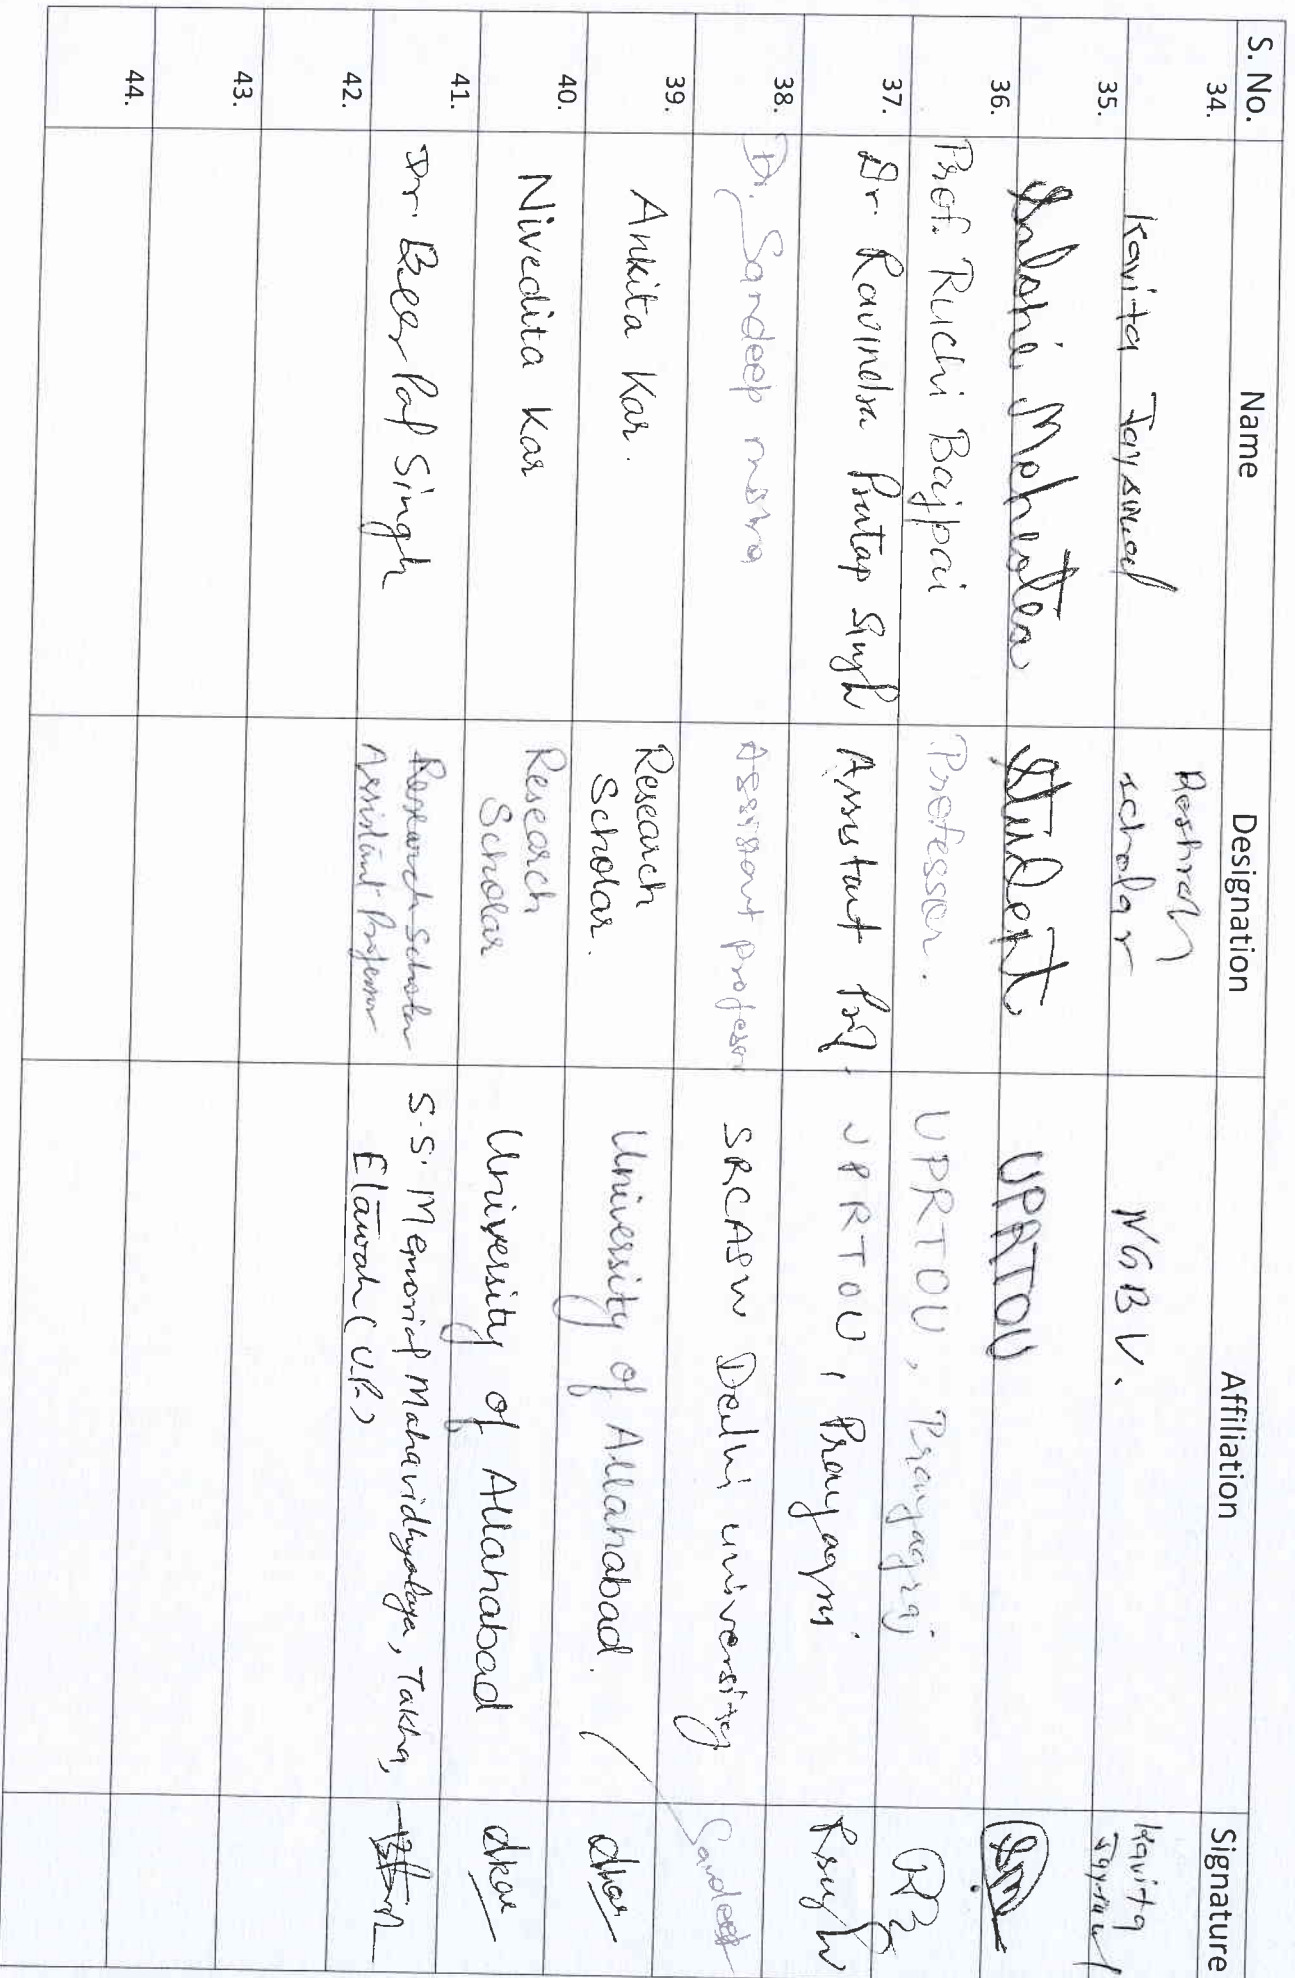 S. No. Name Designation Affiliation Signature
34. Kavita Jayswal Reshrch scholar NGBV. Kavita Jayswal
35. Mehrotra Student UPRTOU SM
36. Prof. Ruchi Bajpai Professor. UPRTOU, Prayagraj RB
37. Dr. Ravindra Pratap Singh Assistant Prof. UPRTOU, Prayagraj RSingh
38. Dr. Sandeep mishra Assistant professor SRCASW Delhi university Sandeep
39. Ankita Kar. Research Scholar. University of Allahabad.
40. Nivedita Kar Research Scholar University of Allahabad
41. Dr. Beer Pal Singh Research Scholar Assistant Professor S.S. Memorial Mahavidhyalaya, Takha, Etawah (U.P.)
42.
43.
44.